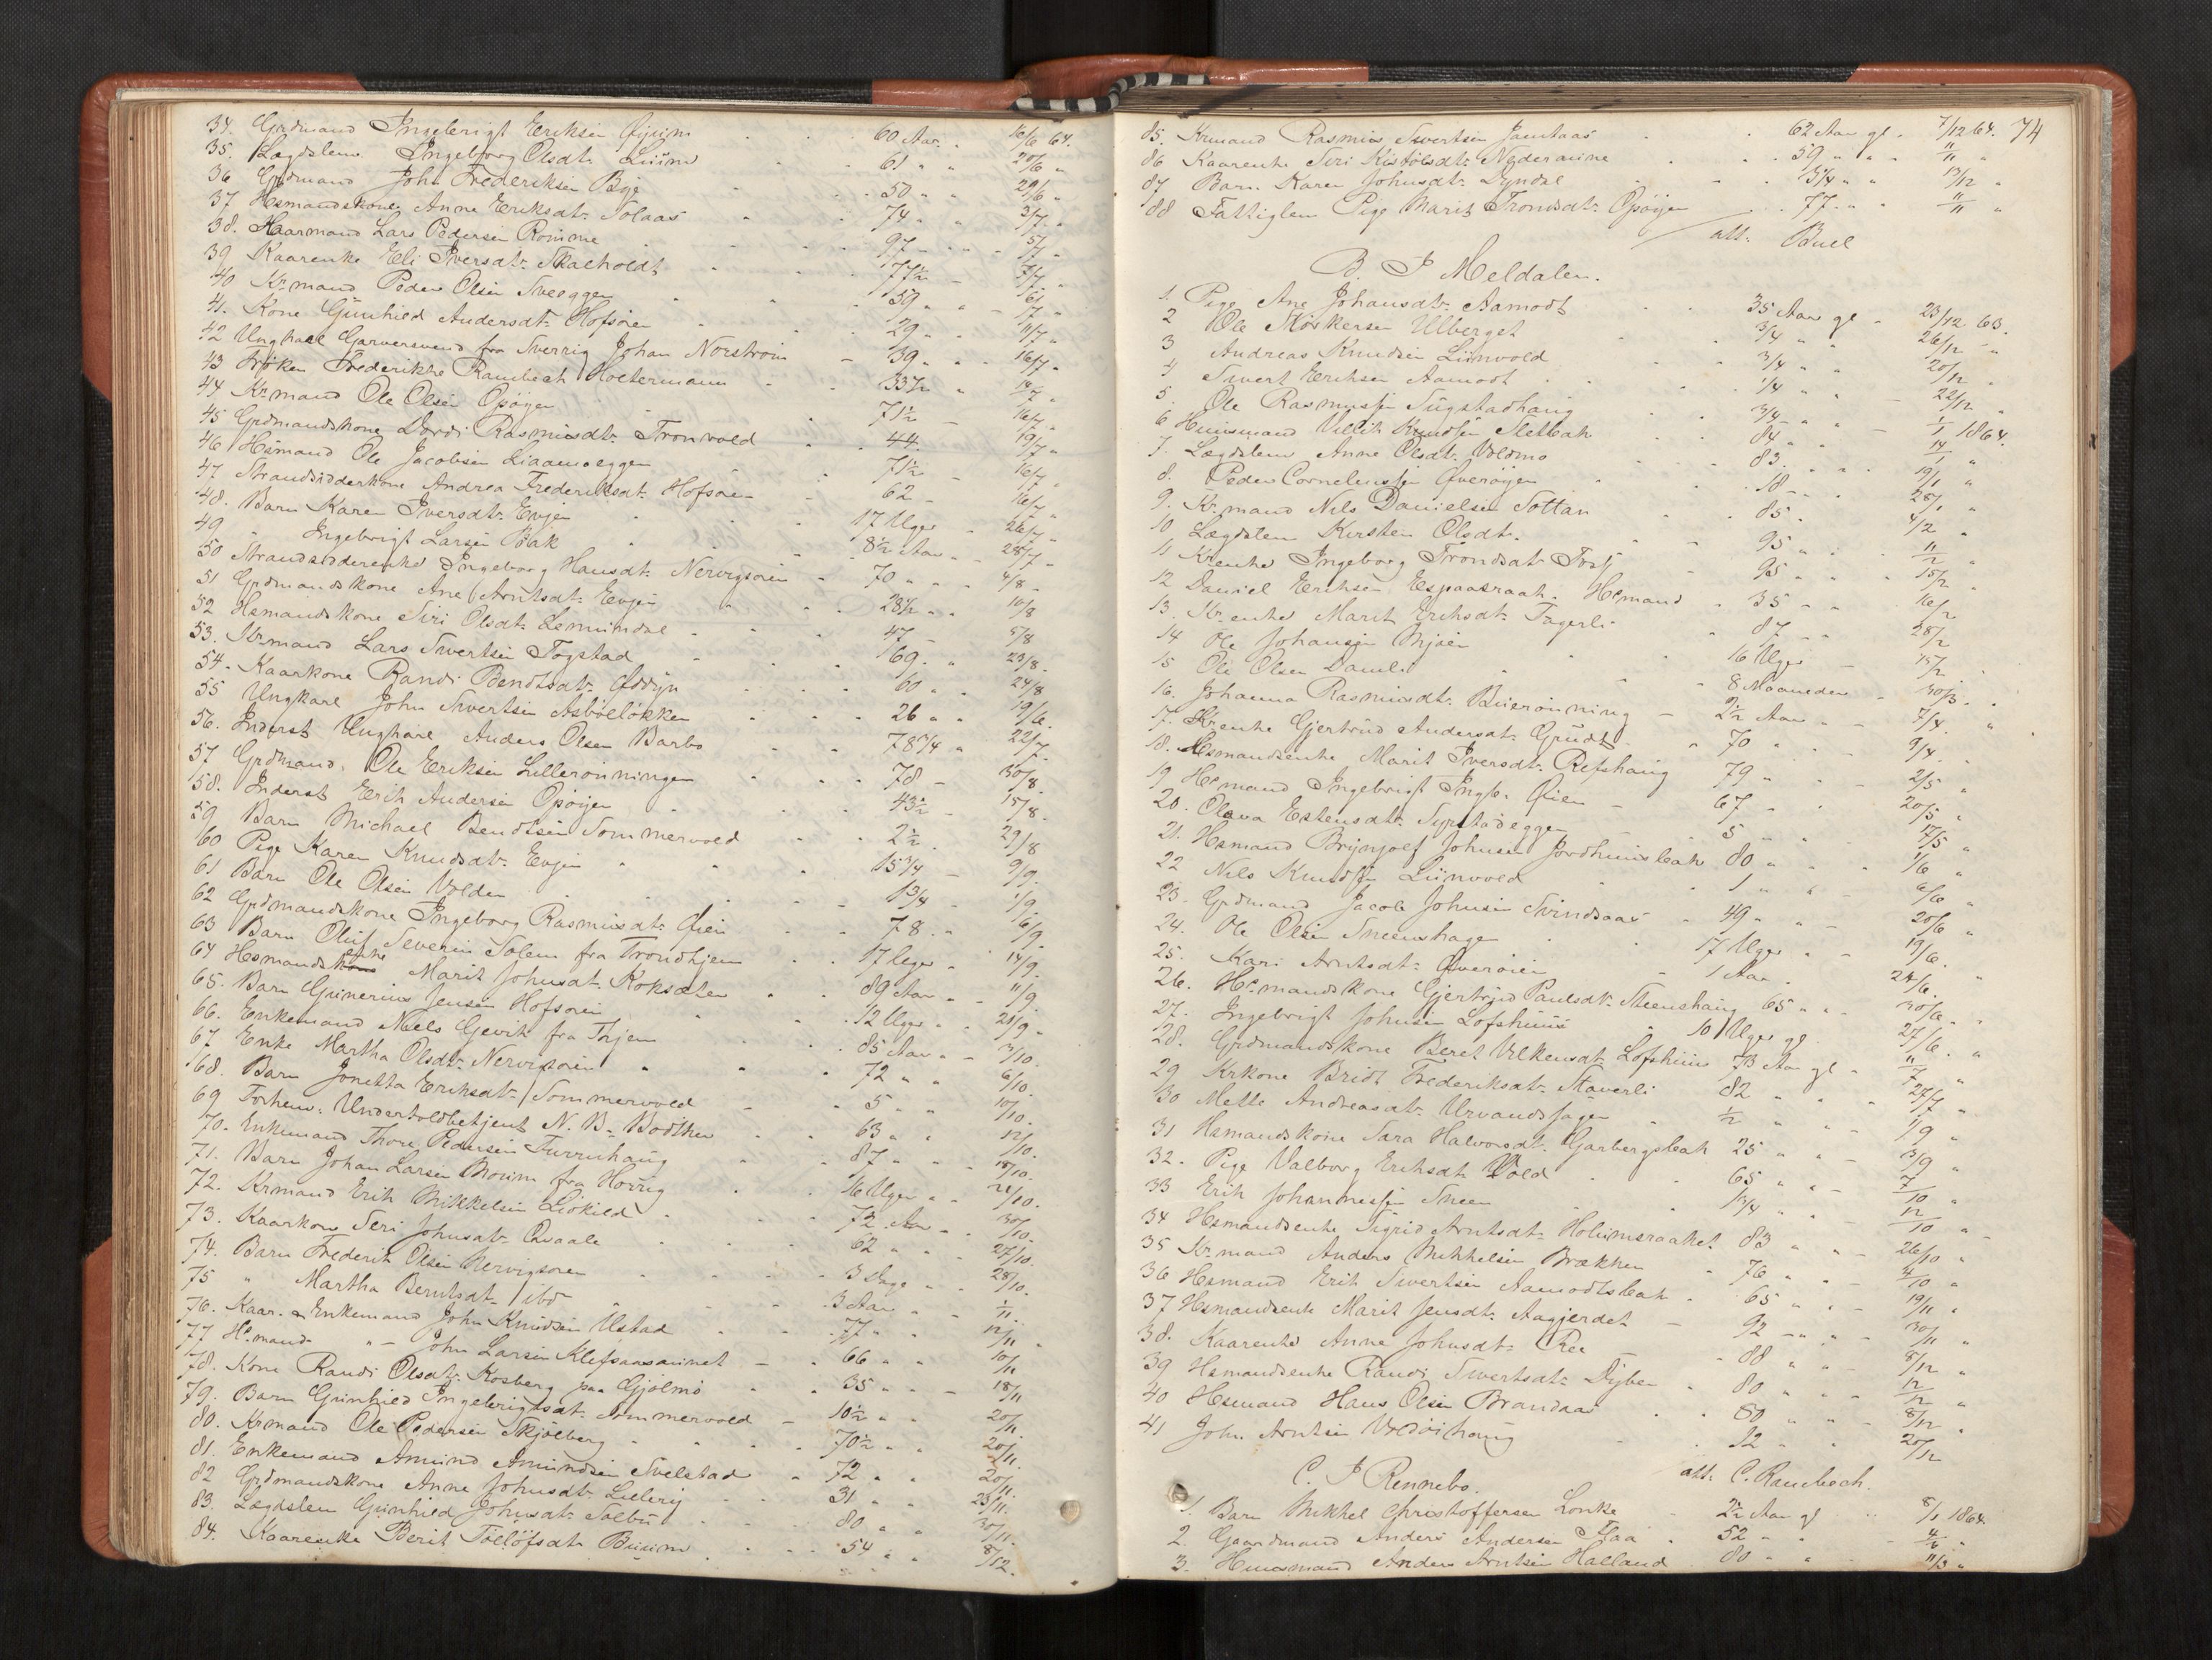 34. Grdmand Ingebrigt Eriksen Øyum 60 Aar. 16/6 64.
35. Lægdslem Ingeborg Olsdt. Liium 61 " " 20/6 "
36 Grdmand John Frederiksen Bye 50 " " 29/6 "
37 Hsmandskone Anne Eriksdt. Solaas 74 " " 3/7 "
38. Haarmand Lars Pedersen Romme 97 " " 5/7 "
39 Kaarenke Eli Iversdt. Skalholdt 77 1/2 7/7 "
40 Krmand Peder Olsen Sveeggen 59 " " 6/7 "
41. Kone Gunhild Andersdt. Hofsøren 29 " " 11/7 "
42 Ungkarl Garversvend fra Sverrig Johan Norstrøm 39 " " 16/7 "
43 Frøken Frederikke Rambech Holtermann 33 1/2 " 14/7 "
44 Krmand Ole Olsen Opøyen 71 1/2 16/7 "
45 Grdmandskone Dordi Rasmusdt. Tronvold 44 19/7 "
46 Hsmand Ole Jacobsen Liaamoeggen 71 1/2 16/7 "
47 Strandsidderkone Andrea Frederiksdt. Hofsøren 62 - 16/7 "
48. Barn Karen Iversdt. Evjen 17 Uger 26/7 "
49 " Ingebrigt Larsen Bak 8 1/2 Aar " 28/7 "
50 Strandsidderenke Ingeborg Hansdt. Nervigsøren 70 " " 4/8 "
51 Grdmandskone Ane Arntsdt. Evjen 28 1/2 " " 10/8
52 Hsmandskone Siri Olsdt. Lomundal 47 - 5/8
53. Krmand Lars Sivertsen Togstad 69. " 23/8.
54. Kaarkone Randi Bendtsdt. Oddyn 60 " " 24/8
55 Ungkarl John Sivertsen Asbølløkken 26 " " 19/6.
56. Inderst Ungkarl Anders Olsen Barbo 78 3/4 " 22/7.
57 Grdmand. Ole Eriksen Lillerønningen 78 - 30/8.
58. Inderst Erik Andersen Opøyen 43 1/2 - 15/8.
59 Barn Michael Bendtsen Sommervold 2 1/2. 29/8
60 Pige Karen Knudsdt. Evjen 15 3/4 - 9/9.
61 Barn Ole Olsen Volden 1 3/4 - 1/9.
62 Grdmandskone Ingeborg Rasmusdt. Øien 78. " 6/9.
63 Barn Oluf Severin Solem fra Trondhjem 17 Uger " 14/9.
64 Hsmandsenke Marit Johnsdt. Koksæter 89 Aar " - 11/9.
65. Barn Gunerius Jensen Hofsøren 12 Uger " " 20/9 "
66. Enkemand Niels Gevik fra Thjem 85 Aar " - 3/10.
67 Enke Martha Olsdt. Nervigsøren 72 " " 6/10.
68. Barn Jonetta Eriksdt. Sommervold 5 " " 10/10.
69 Forhenv. Undertoldbetjent N. B. Bødtker 63 " " 12/10.
70. Enkemand Thore Pedersen Furruhaug 87 " " " 18/10.
71. Barn Johan Larsen Moum fra Horrig 16 Uger " " 21/10.
72. Krmand Erik Mikkelsen Liøkild 72 Aar - 30/10.
73. Kaarkone Seri Johnsdt. Qvaale 62 " " 27/10.
74. Barn Frederik Olsen Nervigsøren 3 Dage " " 28/10.
75 " Martha Berntsdt. ibd 3 Aar " " 1/11.
76. Kaar- & Enkemand John Knudsen Ustad 77 " " 12/11 "
77 Hsmand " - John Larsen Klefsaasaunet 66 " " 10/11
78. Kone Randi Olsdt. Kosberg paa Gjølmo 35 " " - 18/11
79. Barn Gunhild Ingebrigtsdt. Sommervold 10 1/2 " " 20/11.
80. Krmand Ole Pedersen Skjølberg 70 1/2 " " 20/11.
81. Enkemand Amund Amundsen Svelstad 72 " " 20/11.
82 Grdmandskone Anne Johnsdt. Lilleng 31 " " 23/11.
83. Lægdslem Gunhild Johnsdt. Solbu 80 " " 30/11.
84. Kaarenke Berit Tolløfsdt. Buum 54 " " 8/12.
74
85. Krmand Rasmus Sivertsen Jamtaas 62 Aar gl. 7/12 64.
86 Kaarenke Siri Kistolsdt. Nederaune 59 " " " 11/11 "
87 Barn. Karen Johnsdt. Dyndal 13/4 " " 13/12 "
88 Fattiglem Pige Marit Trondsdt. Opøyen 77. " " 11/11 "
att. Bull
B. I Meldalen.
1. Pige Ane Johansdt. Aamodt 35 Aar gl. 23/12 63.
2 Ole Mørkersen Ulberget 3/4 " " 26/12 "
3 Andreas Knudsen Liinvold 3/4 " " 20/12 "
4 Sivert Eriksen Aamodt 1/4 " " 22/12 "
5. Ole Rasmussen Sugstadhaug 3/4 " " - 1/1 1864.
6 Huusmand Ulrik Knudsen Sletbak 84 " " 14/1 "
7. Lægdslem Anne Olsdt. Voldmo 83. " " " 19/1 "
8. Peder Corneliussen Øverøyen 18 - " " 28/1 "
9. Krmand Nils Danielsen Sottan 85. " 4/2 "
10. Lægdslem Kirsten Olsdt. 95 " " 11/2 "
11 Krenke Ingeborg Trondsdt. 95 " " " 15/2 "
12 Daniel Eriksen Espaasraak. Hsmand 35 - " " 16/2 "
13. Krenke Marit Eriksdt. Fagerli 87 " " 28/2 "
14 Ole Johansen Mjøen 16 Uger 15/2 "
15 Oli Olsen Damli 8 Maaneder - 30/3 "
16. Johanna Rasmusdt. Buerønning - 2 1/2 Aar " " 7/4. "
17. Krenke Gjertrud Andersdt. Grudt 70 " " 9/4.
18. Hsmandsenke Marit Iversdt. Refshaug 79 " " 2/5 "
19 Hsmand Ingebrigt Ingbr. Øien - 67 " " 20/5 "
20. Olava Estensdt. Syrstadeggen 5 " " 17/5 "
21. Hsmand Brynjolf Johnsen Jordhuusbak 80 " " 1/6 "
22 Nils Knudsen Liinvold 1 " " - 6/6 "
23. Grdmand Jacob Johnsen Svindsaas 49 " " 20/6 "
24. Ole Olsen Sneenshagen 17 Uger " " 19/6. "
25. Kari Arntsdt. Øverøien 1 Aar. 24/6. "
26. Hsmandskone Gjertrud Paulsdt. Steenshaug 65 " " - 30/6 "
27. Ingebrigt Johnsen Lofshuus 10 Uger gl 27/6. "
28. Grdmandskone Beret Villumsdt. Lofshuus 73 Aar gl - 11/7 "
29 Krkone Bridt Frederiksdt. Staverli 82 " " " 27/7 "
30 Mette Andreasdt. Urvandshagen 1/2 " " " 1/9 "
31 Hsmandskone Sara Halvorsdt. Garbergsbak 25 " " - 13/9 "
32. Pige Valborg Eriksdt. Vold 65 " " - 7/10 "
33 Erik Johannessen Sneen 1 3/4 " " - 12/10 "
34 Hsmandsenke Sigrid Arntsdt. Holumsraaket 83 " " - 26/10 "
35 Krmand Anders Mikkelsen Brækken 76 " " - 4/10 "
36 Hsmand Erik Sivertsen Aamodtsbak 65 " " - 19/11 "
37 Hsmandsenke Marit Jensdt. Aagjerdet - 92 - " " - 30/11 "
38. Kaarenke Anne Johnsdt. Ree - 88 " " - 8/12 "
39 Hsmandsenke Randi Sivertsdt. Dyben 80 " " - 12/12 "
40 Hsmand Hans Olsen Brandaas 80 " " - 8/12 "
41 John Arntsen Voldøihaug 12 " " 20/12
att. C. Rambech.
C. I Rennebo.
1. Barn Mikkel Christoffersen Lonke 2 1/2 Aar gl 8/1 1864.
2. Gaardmand Anders Andersen Flaa 52 " " - 4/2 "
3. Huusmand Anders Arntsen Halland 80 " " - 11/3 "